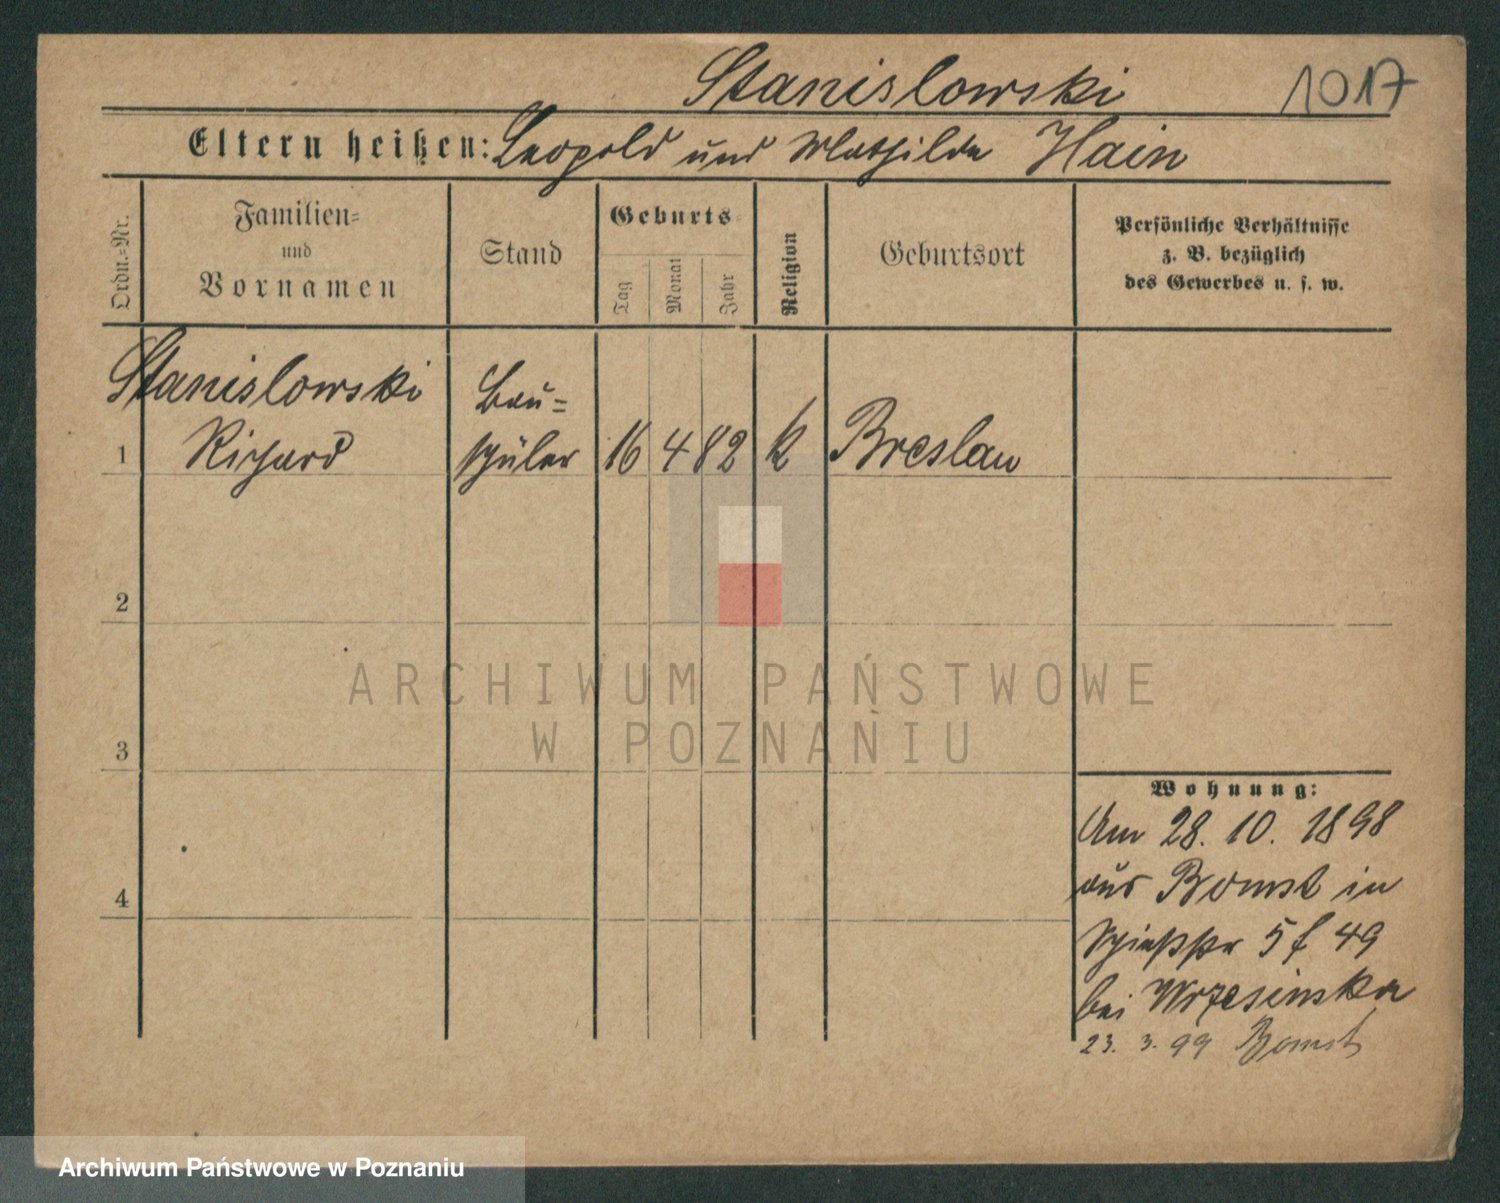 Stanislowski 1017
Eltern heißen: Leopold und Mathilde Hain
Ordn.=Nr.
Familien=
und
Vornamen
Stand
Geburts
Tag Monat Jahr
Religion
Geburtsort
Persönliche Verhältnisse
z. B. bezüglich
des Gewerbes u. s. w.
Stanislowski Bau=
1 Richard schüler 16 4 82 k Breslau
2
3
4
Wohnung:
Am 28. 10. 1898
aus Bomst in
Schießstr 5 f 49
bei Wrzesinska
23. 3. 99 Bomst
ARCHIWUM PAŃSTWOWE
W POZNANIU
Archiwum Państwowe w Poznaniu